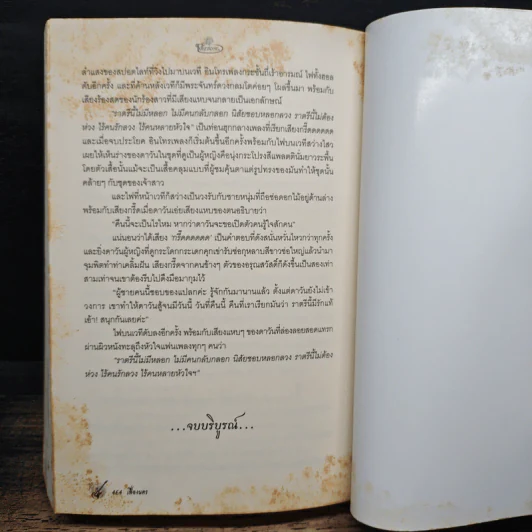 ลำแสงของสปอตไลท์ที่วิ่งไปมาบนเวที อินโทรเพลงกระชั้นถี่เร้าอารมณ์ ไฟทั้งฮอล
ดับอีกครั้ง และที่ด้านหลังเวทีก็มีพระจันทร์ดวงกลมโตค่อยๆ โผล่ขึ้นมา พร้อมกับ
เสียงร้องสดของนักร้องสาวที่มีเสียงแหบจนกลายเป็นเอกลักษณ์
“ราตรีนี้ไม่มีหลอก ไม่มีคนกลับกลอก นิสัยชอบหลอกลวง ราตรีนี้ไม่ต้อง
ห่วง ไร้คนรักลวง ไร้คนหลายหัวใจ” เป็นท่อนฮุกกลางเพลงที่เรียกเสียงกรี๊ดดดดดด
และเมื่อจบประโยค อินโทรเพลงก็เริ่มต้นขึ้นอีกครั้งพร้อมกับไฟบนเวทีสว่างไสว
เผยให้เห็นร่างของดาวันในชุดที่ดูเป็นผู้หญิงคือนุ่งกระโปรงสีแพลตตินัมยาวระพื้น
โดยตัวเสื้อนั้นแม้จะเป็นเสื้อคลุมแบบที่ผู้ชมคุ้นตาแต่รูปทรงของมันทำให้ชุดนั้น
คล้ายๆ กับชุดของเจ้าสาว
และไฟที่หน้าเวทีก็สว่างเป็นวงรับกับชายหนุ่มที่ถือช่อดอกไม้อยู่ด้านล่าง
พร้อมกับเสียงกรี๊ดเมื่อดาวันเอ่ยเสียงแหบของตนอธิบายว่า
“คืนนี้จะเป็นไรไหม หากว่าดาวันจะขอเปิดตัวคนรู้ใจสักคน”
แน่นอนว่าได้เสียง ‘กรี๊ดดดดดด’ เป็นคำตอบที่ดังสนั่นหวั่นไหวกว่าทุกครั้ง
และยิ่งดาวันผู้หญิงที่ดูกระโดกกระเดกคุกเข่ารับช่อกุหลาบสีขาวช่อใหญ่แล้วนำมา
จุมพิตทำท่าเคลิ้มฝัน เสียงกรี๊ดจากคนข้างๆ ตัวของอรุณสวัสดิ์ก็ดังขึ้นเป็นสองเท่า
สามเท่าจนเขาต้องรีบไปดึงมือมากุมไว้
“ผู้ชายคนนี้ชอบของแปลกค่ะ รู้จักกันมานานแล้ว ตั้งแต่ดาวันยังไม่เข้า
วงการ เขาทำให้ดาวันสู้จนมีวันนี้ วันที่คืนนี้ คืนที่เราเรียกมันว่า ราตรีนี้มีรักแท้
เอ้า! สนุกกันเลยค่ะ”
ไฟบนเวทีดับลงอีกครั้ง พร้อมกับเสียงแหบๆ ของดาวันที่ล่องลอยสอดแทรก
ผ่านผิวหนังทะลุถึงหัวใจแฟนเพลงทุกๆ คนว่า
“ราตรีนี้ไม่มีหลอก ไม่มีคนกลับกลอก นิสัยชอบหลอกลวง ราตรีนี้ไม่ต้อง
ห่วง ไร้คนรักลวง ไร้คนหลายหัวใจฯ”
...จบบริบูรณ์...